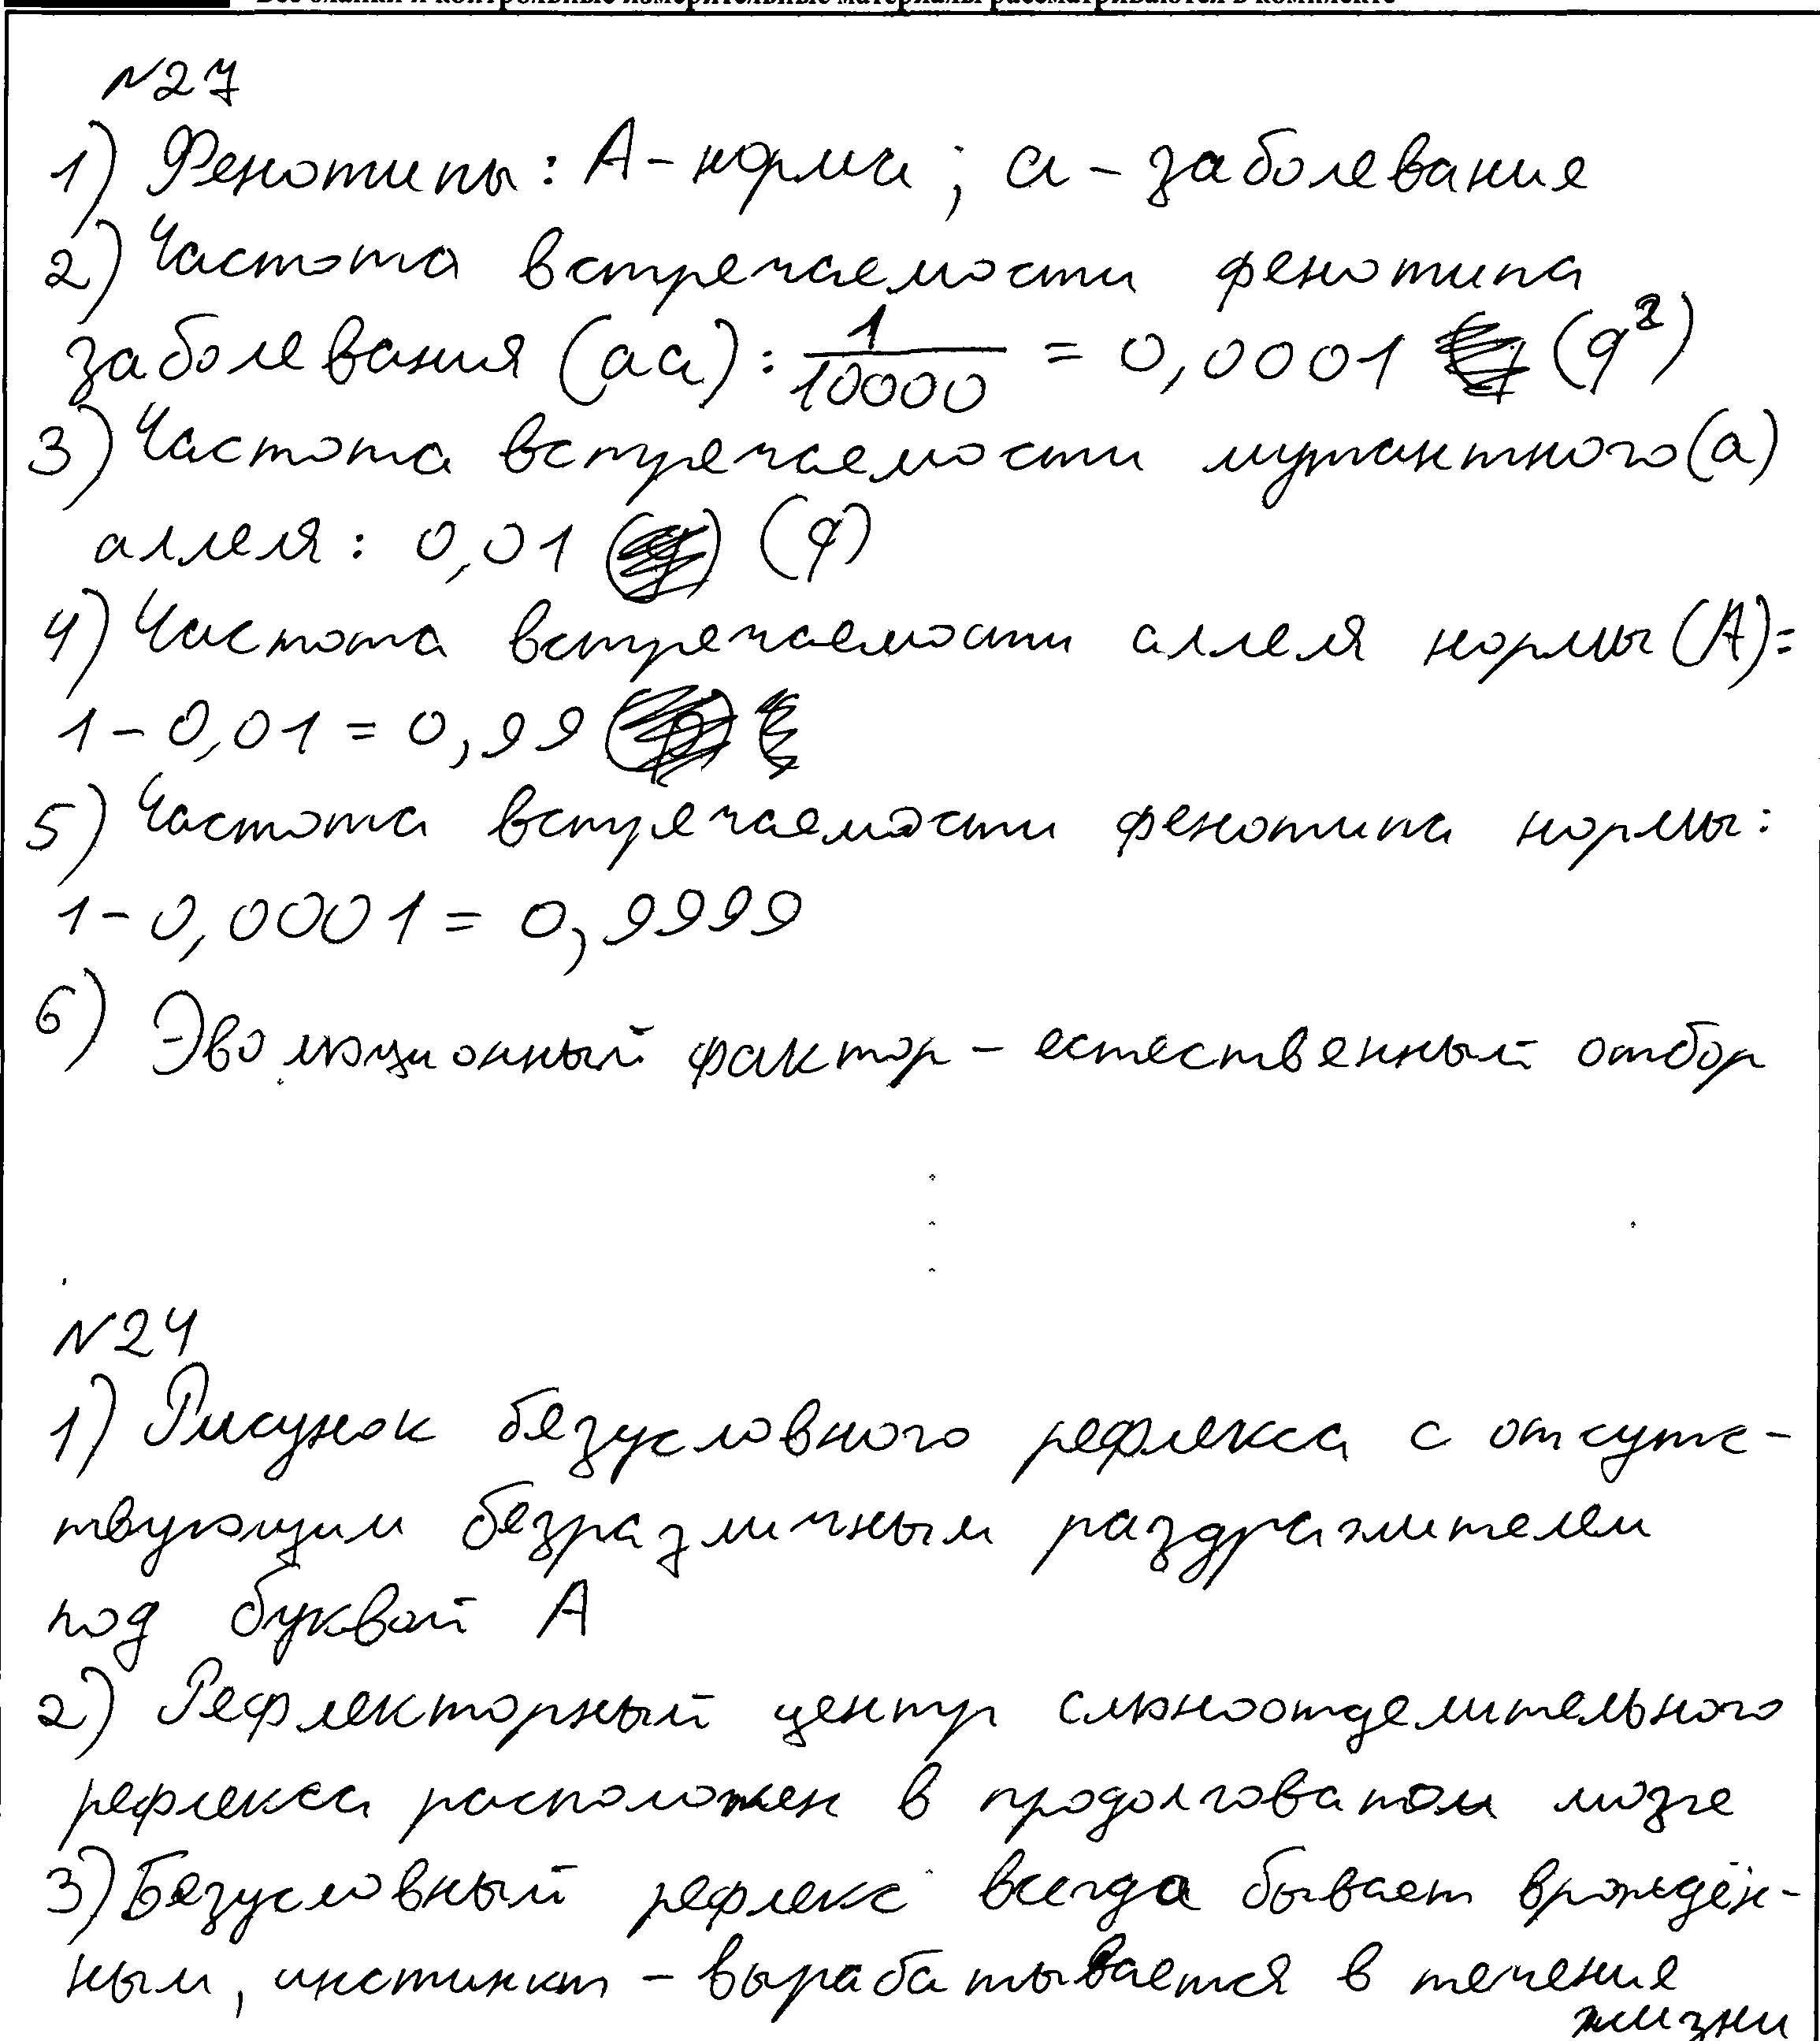 Все бланки и контрольные измерительные материалы рассматриваются в комплекте
№27
1) Фенотипы: А - норма; а - заболевание
2) Частота встречаемости фенотипа
заболевания (аа): 1/10000 = 0,0001 (q²)
3) Частота встречаемости мутантного (а)
аллеля: 0,01 (q)
4) Частота встречаемости аллеля нормы (А) =
1 - 0,01 = 0,99
5) Частота встречаемости фенотипа нормы:
1 - 0,0001 = 0,9999
6) Эволюционный фактор - естественный отбор
№24
1) Рисунок безусловного рефлекса с отсутс-
твующим безразличным раздражителем
под буквой А
2) Рефлекторный центр слюноотделительного
рефлекса расположен в продолговатом мозге
3) Безусловный рефлекс всегда бывает врождён-
ным, инстинкт - вырабатывается в течение
жизни